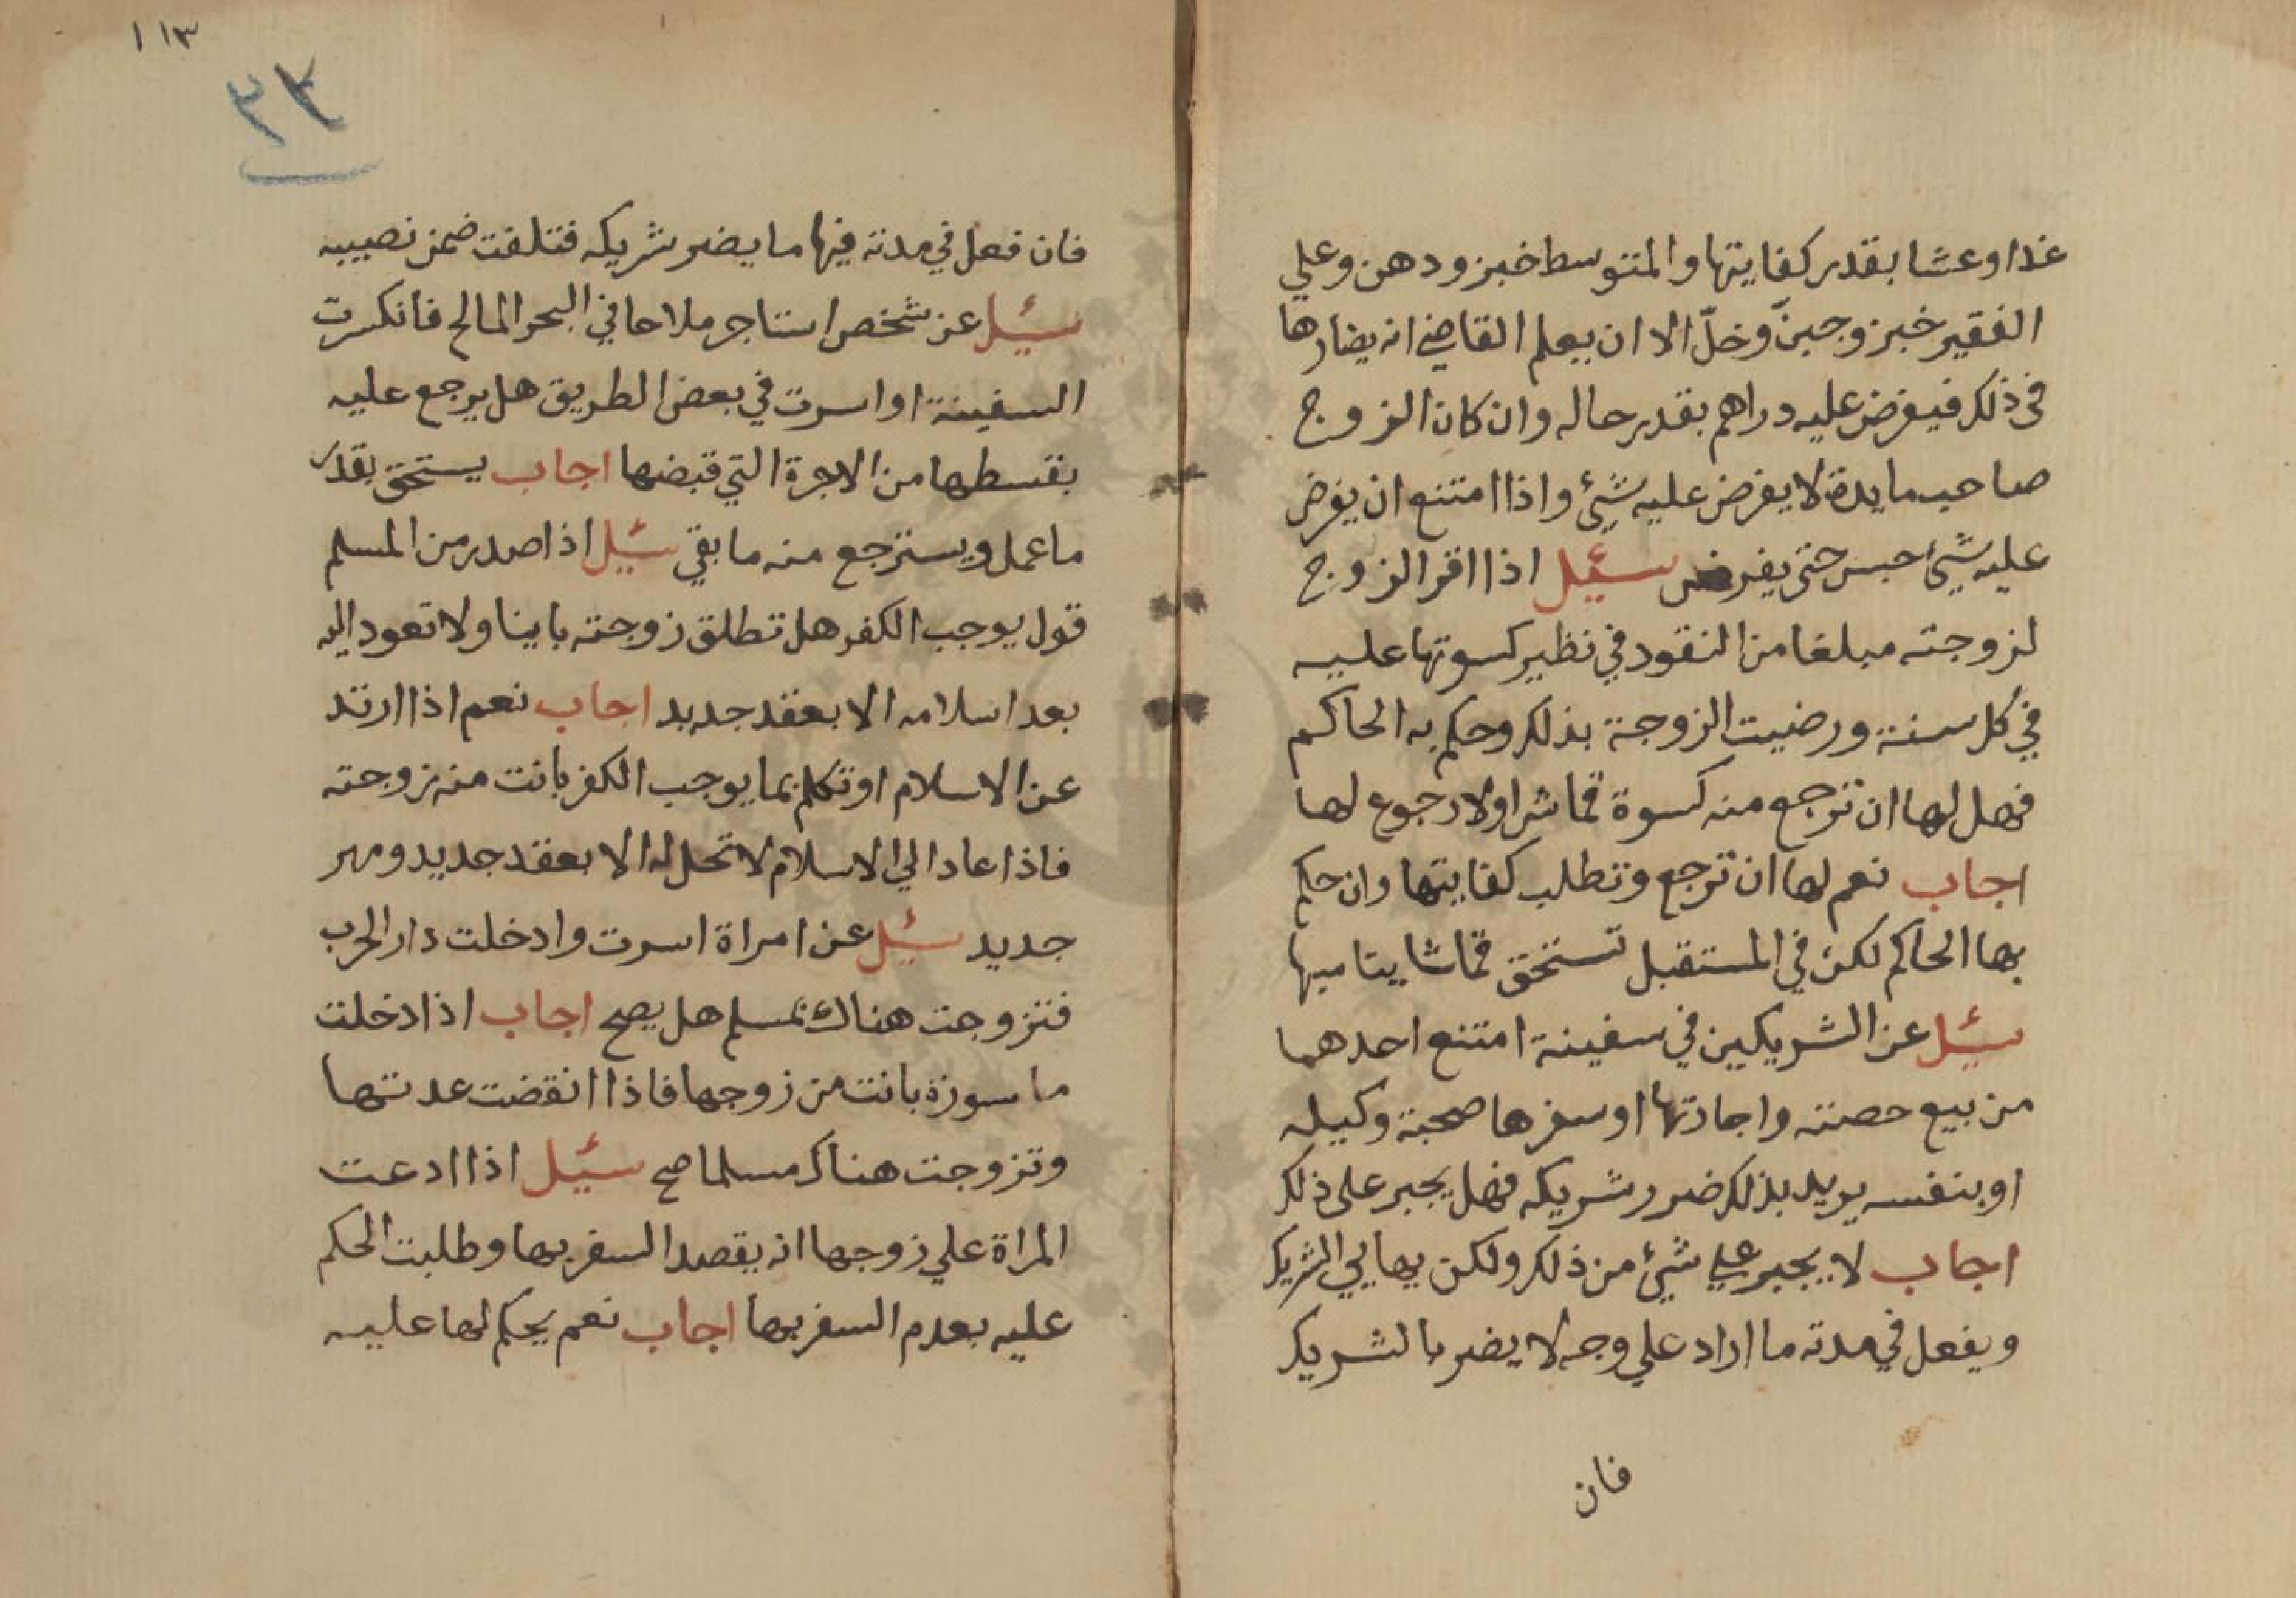 غدا وعشا بقدر كفايتها والمتوسط خبز ودهن وعلي
الفقير خبز وجبن وخلّ الا ان يعلم القاضي انه يضارها
في ذلك فيفرض عليه دراهم بقدر حاله وان كان الزوج
صاحب مايدة لا يفرض عليه شيئ واذا امتنع ان يفرض
عليه شيئ حبس حتى يفرض سئيل اذا اقر الزوج
لزوجته مبلغا من النقود في نظير كسوتها عليه
في كل سنة ورضيت الزوجة بذلك وحكم به الحاكم
فهل لها ان ترجع منه كسوة قماش او لا رجوع لها
اجاب نعم لها ان ترجع وتطلب كفايتها وان حكم
بها الحاكم لكن في المستقبل تستحق قماشا يناسبها
سئيل عن الشريكين في سفينة امتنع احدهما
من بيع حصته واجارتها او سفرها صحبة وكيله
او بنفسه يريد بذلك ضرر شريكه فهل يجبر على ذلك
اجاب لا يجبر علي شيئ من ذلك ولكن يهايي الشريك
ويفعل في مدته ما اراد علي وجه لا يضر بالشريك
فان
١١٣
٣٣
فان فعل في مدته فيها ما يضر شريكه فتلفت ضمن نصيبه
سئيل عن شخص استاجر ملاحا في البحر المالح فانكسرت
السفينة او اسرت في بعض الطريق هل يرجع عليه
بقسطها من الاجرة التي قبضها اجاب يستحق بقدر
ما عمل ويسترجع منه ما بقي سئيل اذا صدر من المسلم
قول يوجب الكفر هل تطلق زوجته باينا ولا تعود اليه
بعد اسلامه الا بعقد جديد اجاب نعم اذا ارتد
عن الاسلام او تكلم بما يوجب الكفر بانت منه زوجته
فاذا عاد الي الاسلام لا تحل له الا بعقد جديد ومهر
جديد سئيل عن امراة اسرت وادخلت دار الحرب
فتزوجت هناك بمسلم هل يصح اجاب اذا دخلت
ماسورة بانت من زوجها فاذا انقضت عدتها
وتزوجت هناك مسلما صح سئيل اذا ادعت
المراة علي زوجها انه يقصد السفر بها وطلبت الحكم
عليه بعدم السفر بها اجاب نعم يحكم لها عليه